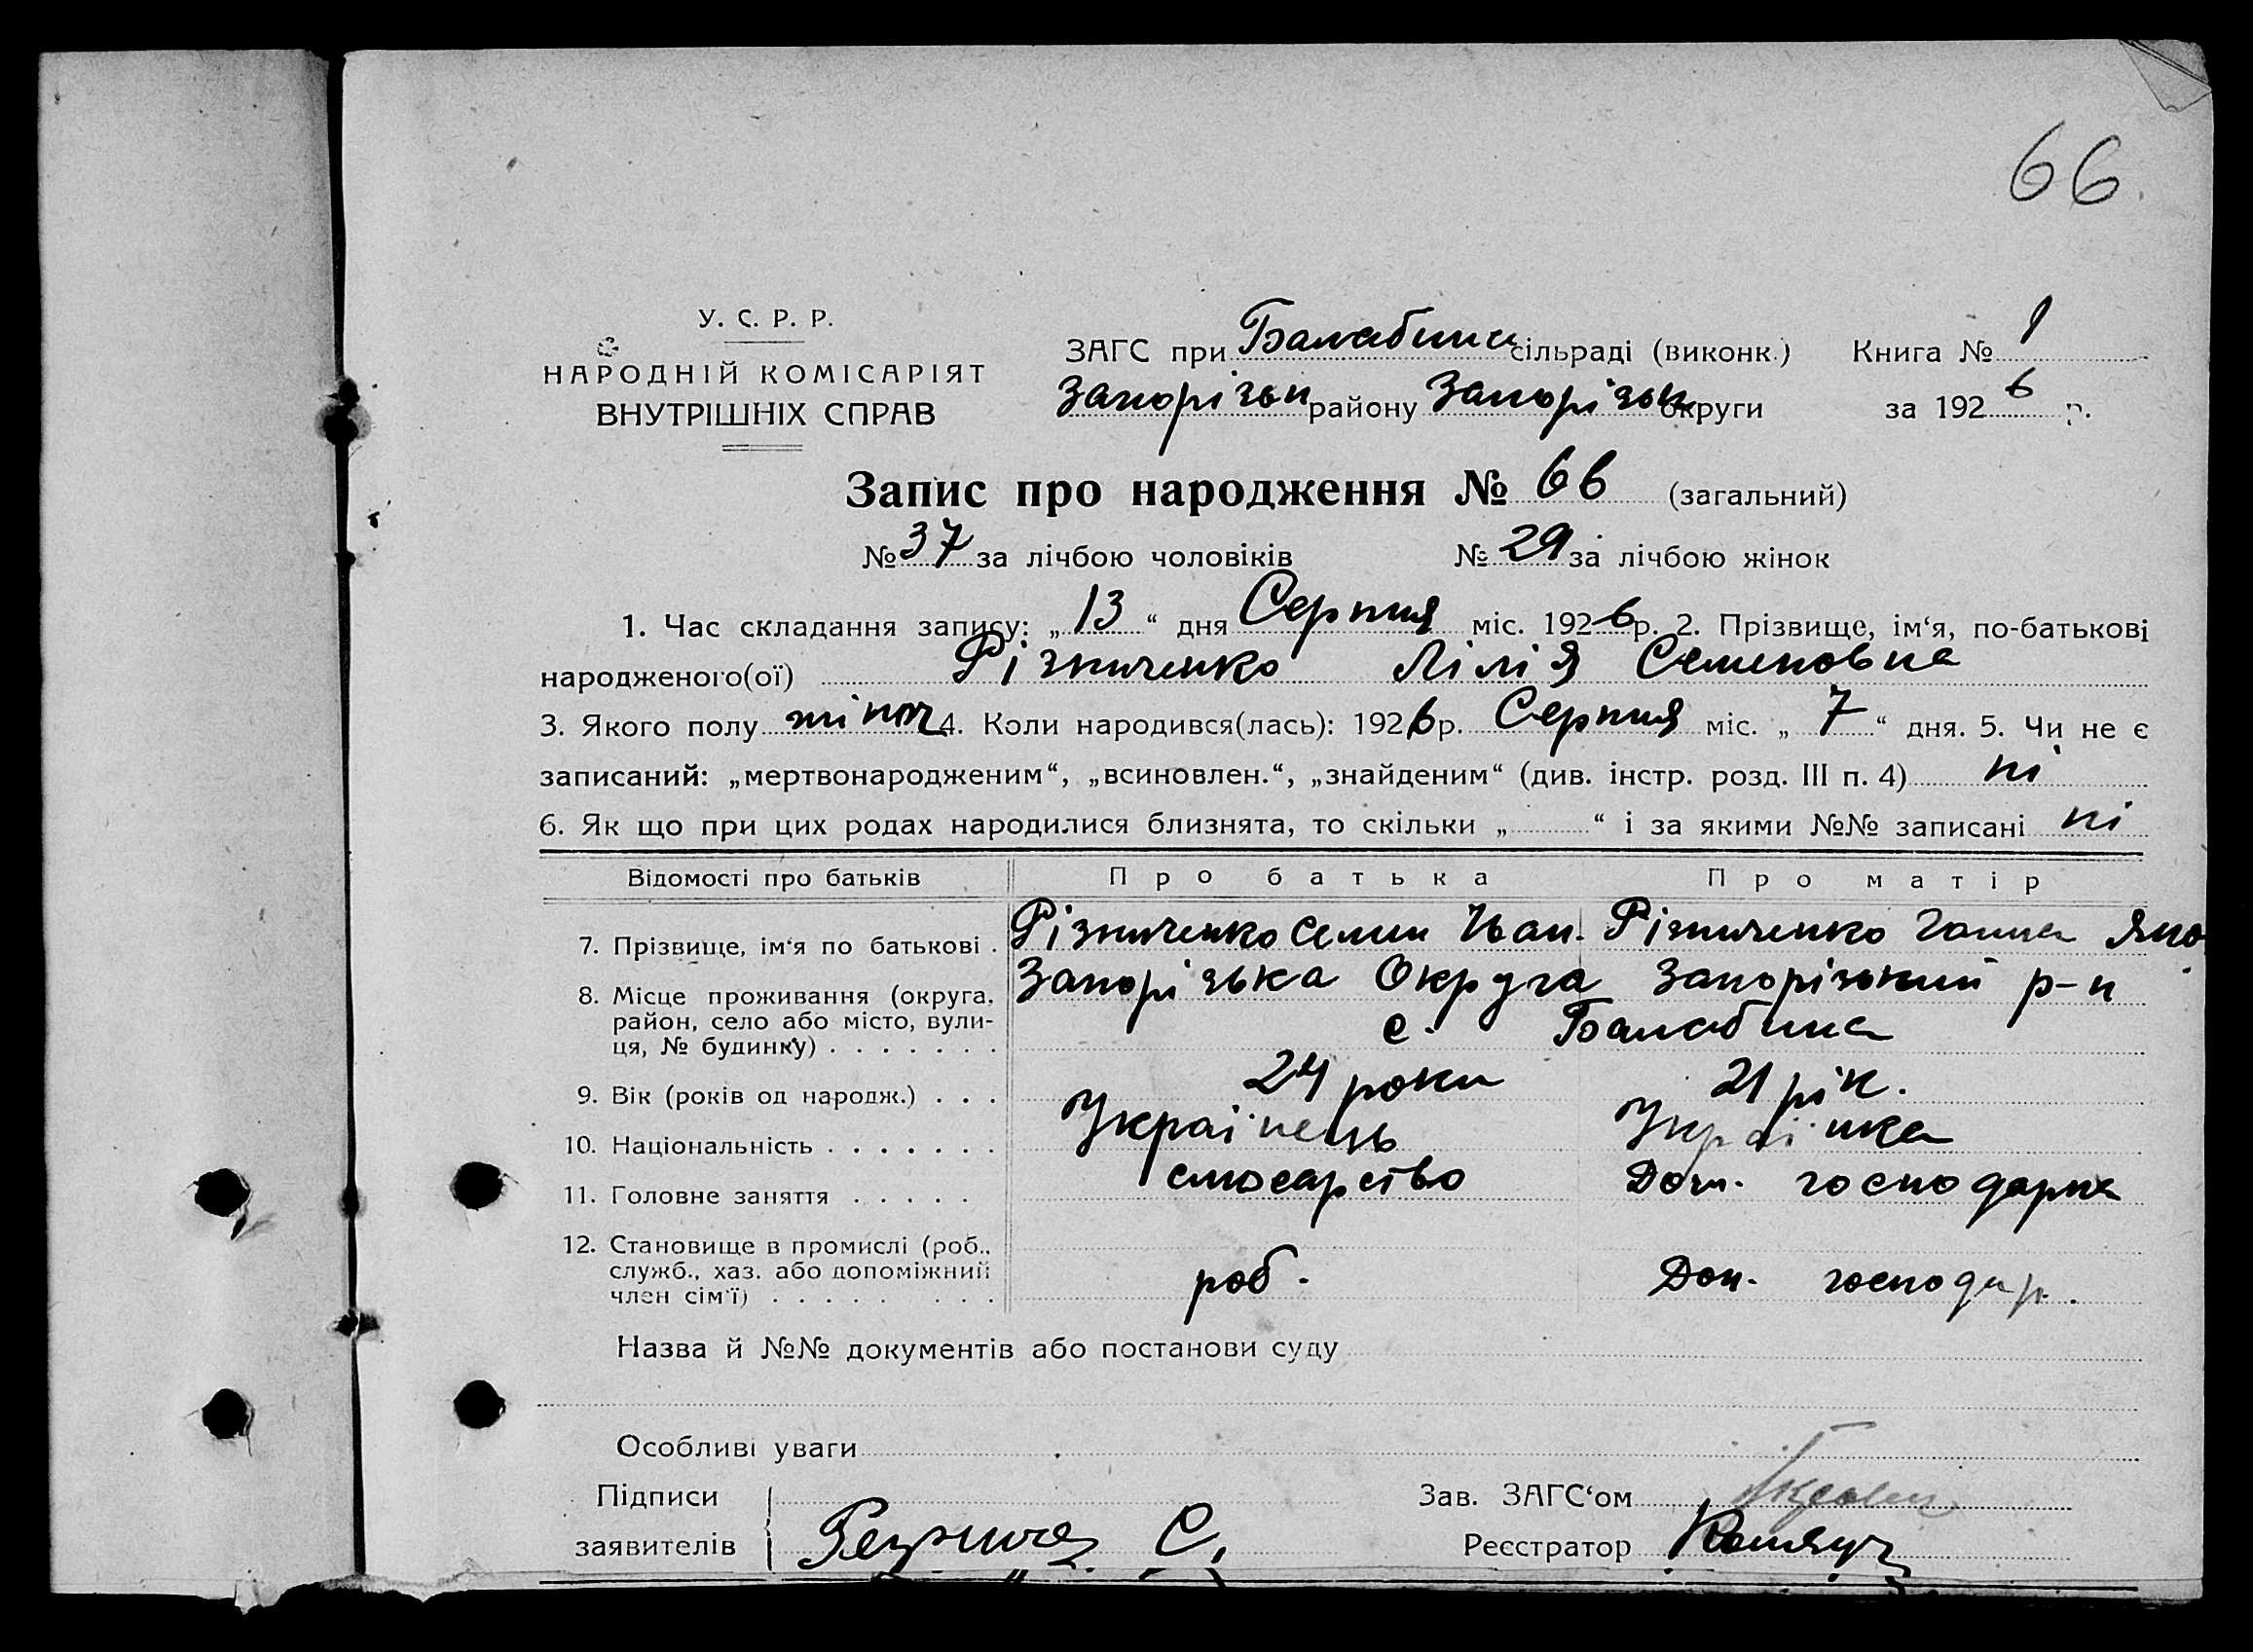 66
У. С. Р. Р.
НАРОДНІЙ КОМІСАРІЯТ
ВНУТРІШНІХ СПРАВ
ЗАГС при Балабина сільраді (виконк.) Книга № 1
Запорізьк району Запорізьк округи за 1926 р.
Запис про народження № 66 (загальний)
№ 37 за лічбою чоловіків № 29 за лічбою жінок
1. Час складання запису: „13“ дня Серпня міс. 1926 р. 2. Прізвище, ім‘я, по-батькові
народженого(ої) Різниченко Лілія Семеновна
3. Якого полу жіноч 4. Коли народився(лась): 1926 р. Серпня міс. „7“ дня. 5. Чи не є
записаний: „мертвонародженим“, „всиновлен.“, „знайденим“ (див. інстр. розд. III п. 4) ні
6. Як що при цих родах народилися близнята, то скільки „ “ і за якими №№ записані ні
Відомості про батьків Про батька Про матір
7. Прізвище, ім‘я по батькові . Різниченко Семен Іван. Різниченко Ганна Яко
8. Місце проживання (округа, Запорізька Округа Запорізький р-н
район, село або місто, вули- с. Балабина
ця, № будинку) . . . . . . .
9. Вік (років од народж.) . . . 24 роки 21 рік.
10. Національність . . . . . . . Українець Українка
11. Головне заняття . . . . . слюсарство Дом. господарка
12. Становище в промислі (роб.,
служб., хаз. або допоміжний роб. Дом. господар.
член сім‘ї) . . . . . . . .
Назва й №№ документів або постанови суду
Особливі уваги
Підписи Зав. ЗАГС‘ом
заявителів С. Реєстратор